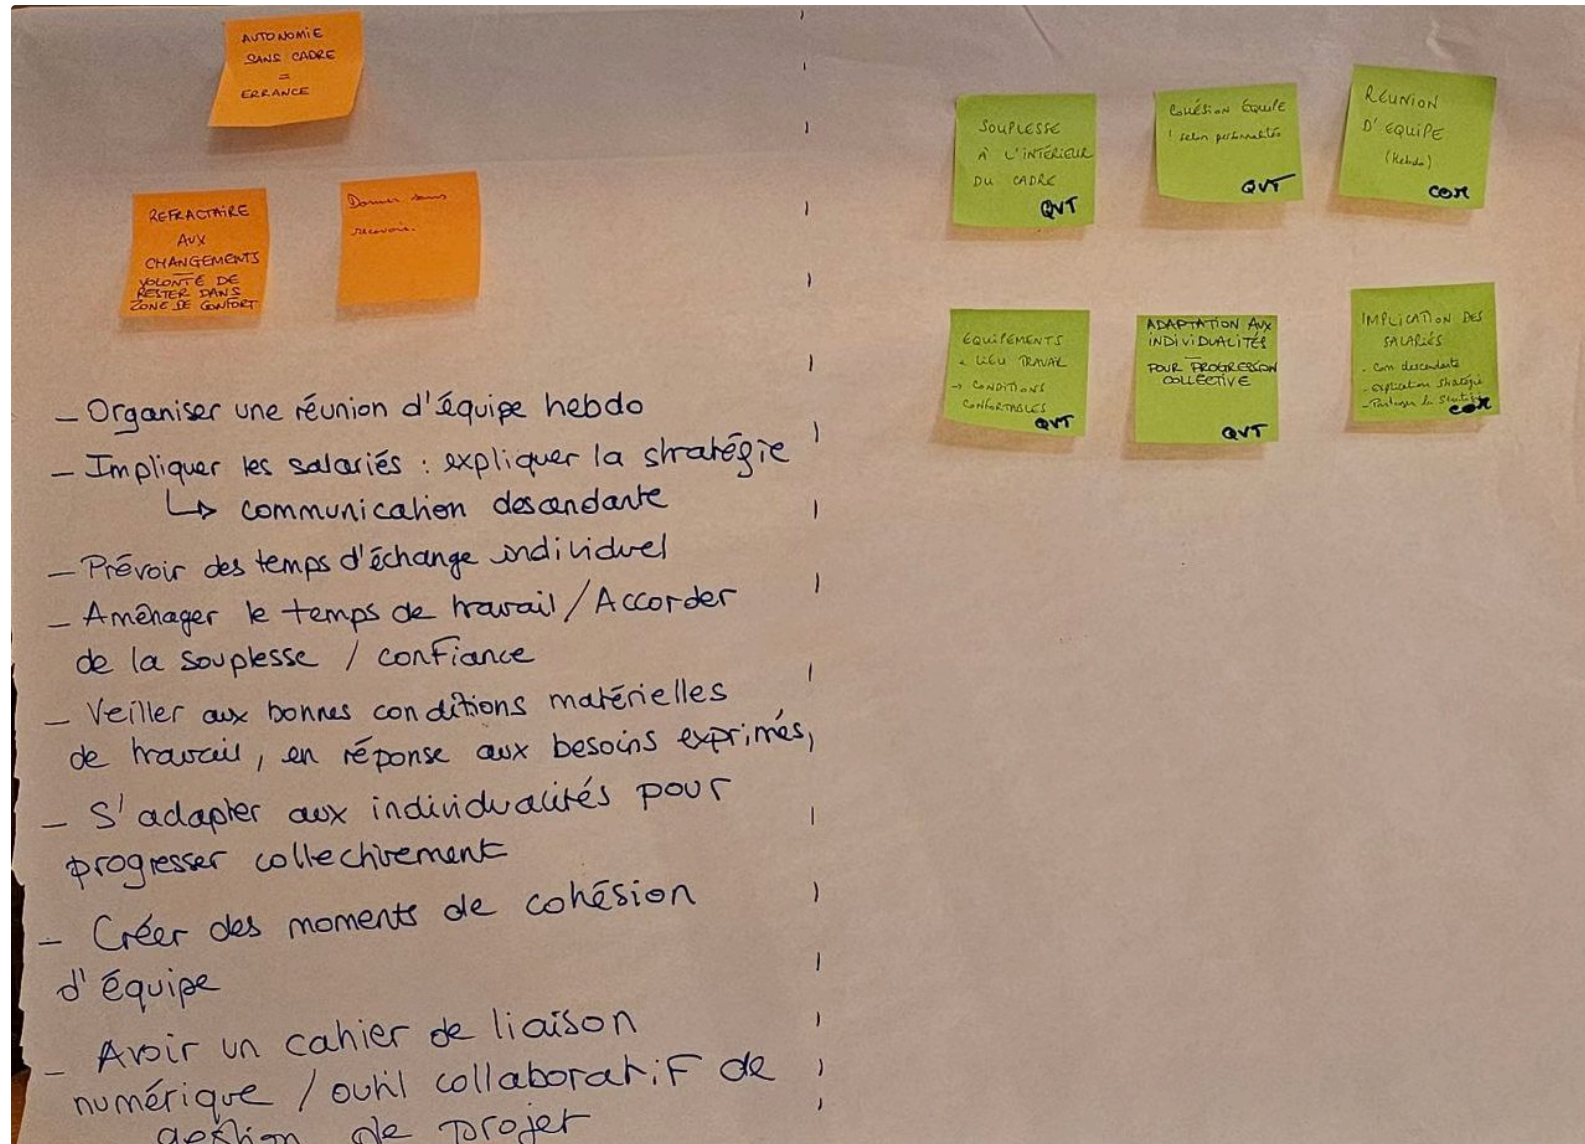 AUTONOMIE
SANS CADRE
=
ERRANCE
REFRACTAIRE
AUX
CHANGEMENTS
VOLONTÉ DE
RESTER DANS
ZONE DE CONFORT
Donner sans
recevoir.
- Organiser une réunion d'équipe hebdo
- Impliquer les salariés : expliquer la stratégie
↳ communication descendante
- Prévoir des temps d'échange individuel
- Aménager le temps de travail / Accorder
de la souplesse / confiance
- Veiller aux bonnes conditions matérielles
de travail, en réponse aux besoins exprimés,
- S'adapter aux individualités pour
progresser collectivement
- Créer des moments de cohésion
d'équipe
- Avoir un cahier de liaison
numérique / outil collaboratif de
gestion de projet
SOUPLESSE
À L'INTÉRIEUR
DU CADRE
QVT
COHÉSION ÉQUIPE
! selon personnalités
QVT
RÉUNION
D'ÉQUIPE
(Hebdo)
COM
ÉQUIPEMENTS
+ LIEU TRAVAIL
→ CONDITIONS
CONFORTABLES
QVT
ADAPTATION AUX
INDIVIDUALITÉS
POUR PROGRESSION
COLLECTIVE
QVT
IMPLICATION DES
SALARIÉS
- Com descendante
- explication stratégie
- Partager la stratégie
COM